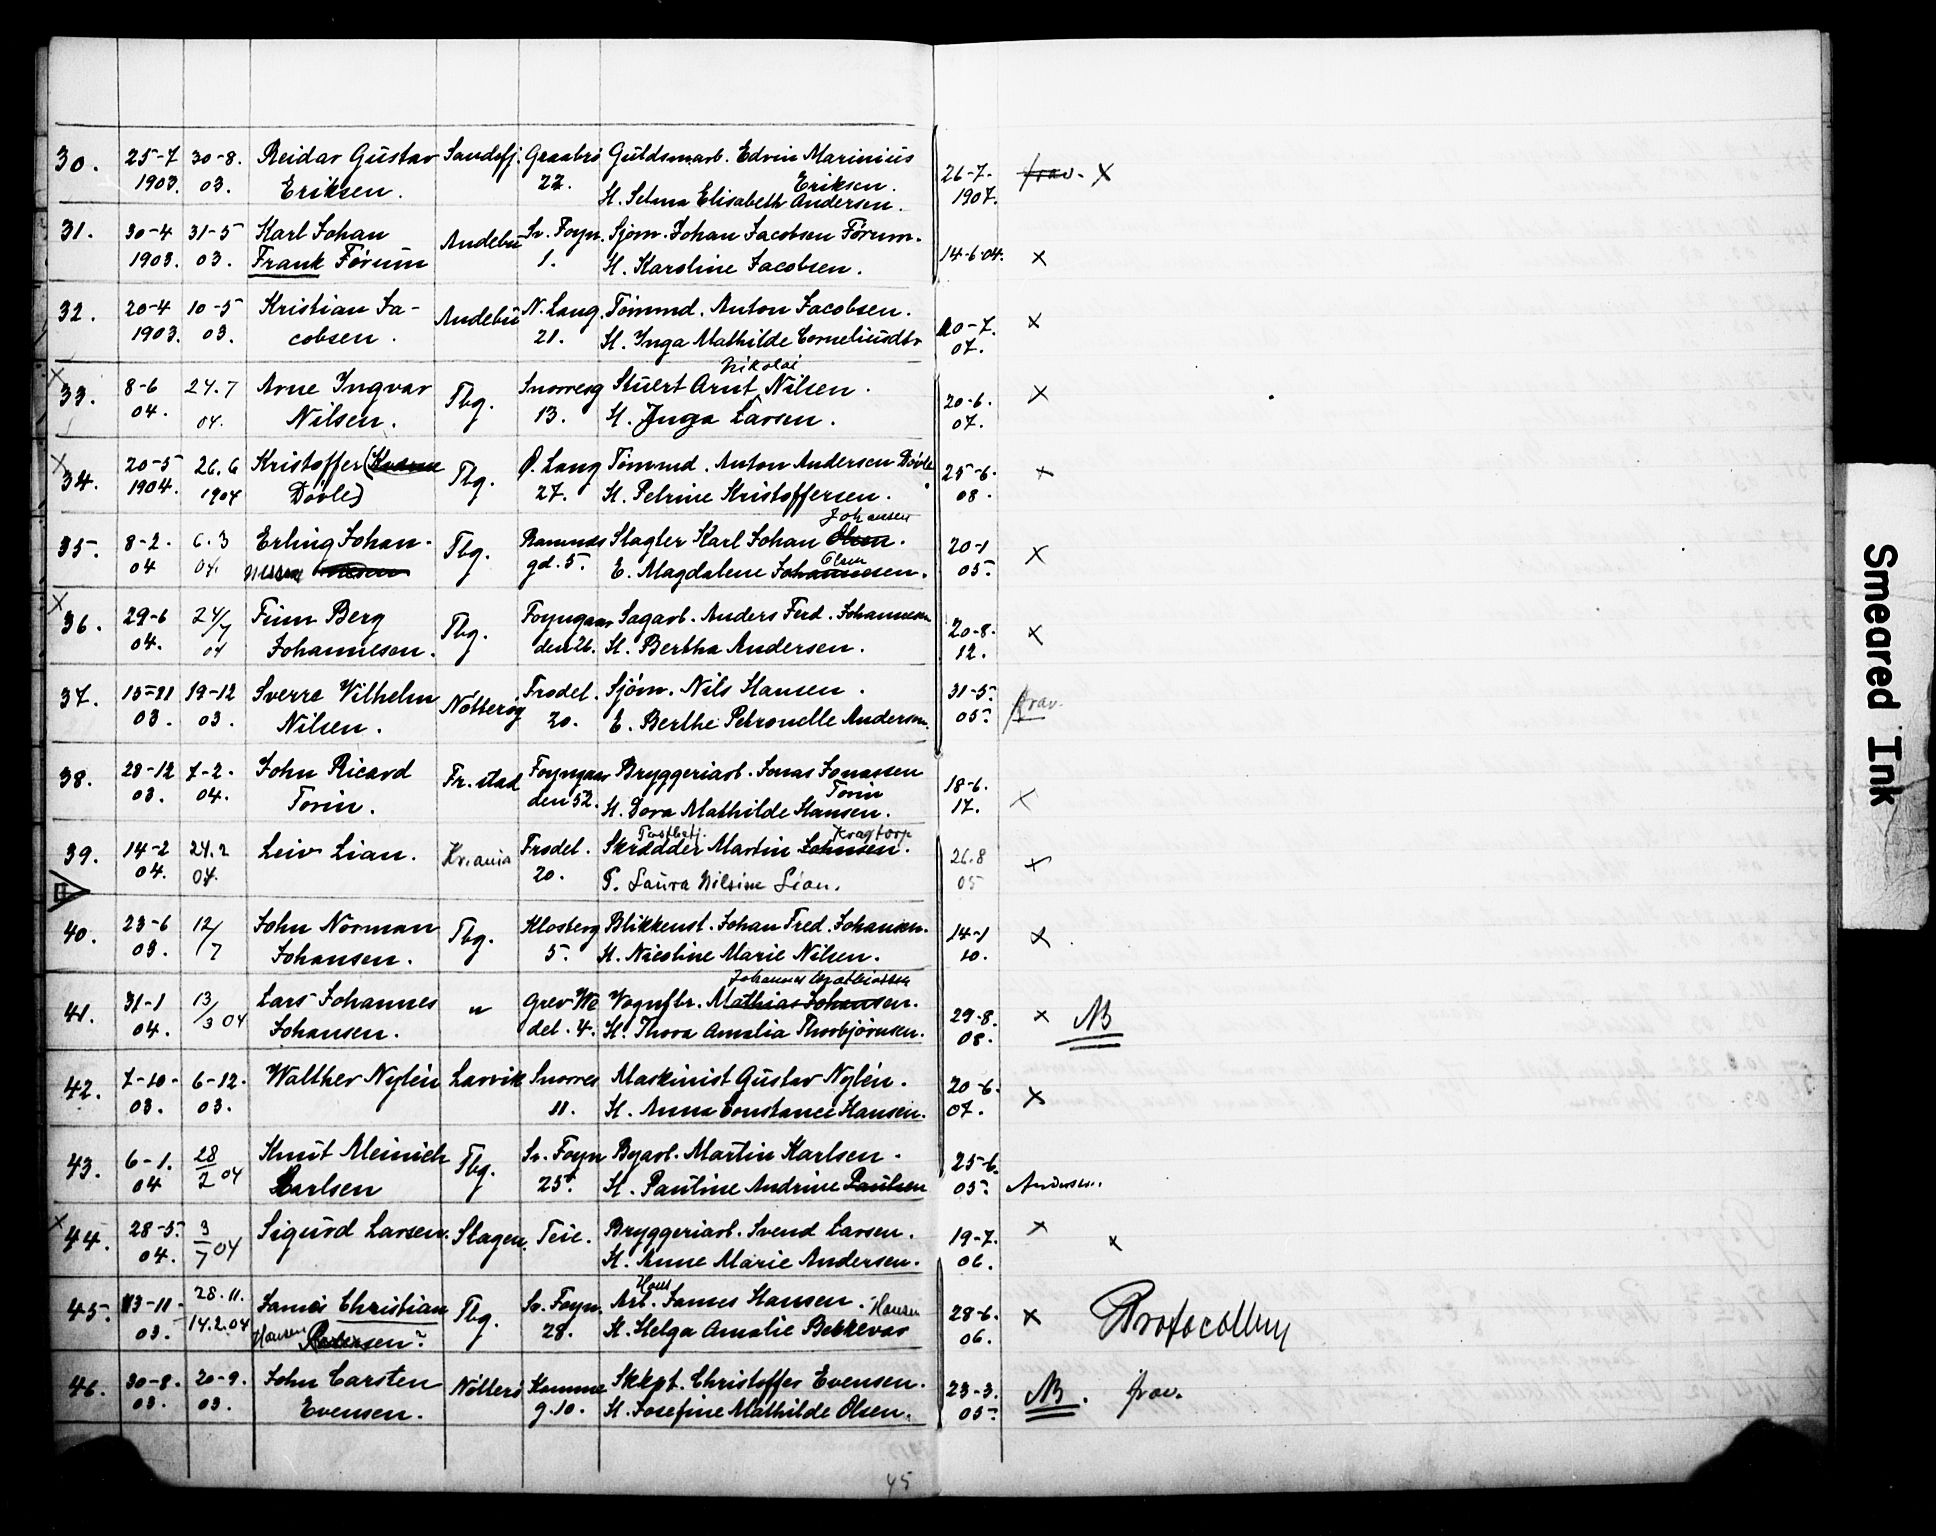 30. 25-7 30-8. Reidar Gustav Sandefj. Graabrö Guldsmarb. Edvin Marinius
1903. 03. Eriksen. 22. Eriksen. 26-7. frav. X
H. Selma Elisabeth Andersen. 1907.
31. 30-4 31-5 Karl Johan Andebu Sv. Foyn. Sjöm. Johan Jacobsen Förum.
1903. 03. Frank Förum 1. H. Karoline Jacobsen. 14-6-04. X
32. 20-4 10-5 Kristian Ja- Andebu N. Lang. Tömmd. Anton Jacobsen.
1903. 03. cobsen. 21. H. Inga Mathilde Corneliusdtr 20-7. X
07.
Nikolai
X 33. 8-6 24.7 Arne Ingvar Tbg. Snorresg Stuert Arnt Nilsen. X
04. 04. Nilsen. 13. H. Inga Larsen. 20-6. 07.
X 34. 20-5 26.6 Kristoffer (Tbg. Ö. Lang Tömmd. Anton Andersen Dövle X
1904. 1904 Dövle) 27. H. Petrine Kristoffersen. 25-6. 08.
Johansen
35. 8-2. 6.3 Erling Johan- Tbg. Ramnes Slagter Karl Johan Olsen. 20-1 X
Olsen
04 04. nessen gd. 5. E. Magdalene Johannesen. 05.
X 36. 29-6 24/7 Finn Berg Tbg. Foyngaar Sagarb. Anders Ferd. Johannesen
04. 04 Johannesen. den 26. H. Bertha Andersen. 20-8. 12. X
37. 15-11 19-12 Sverre Vilhelm Nötterög Frodel. Sjöm. Nils Hansen. 31-5. frav.
03. 03. Nilsen. 20. E. Berthe Petronelle Andersen. 05.
38. 28-12 7-2. John Ricard Fr. stad Foyngaar Bryggeriarb. Jonas Jonassen
Torin
03. 04. Torin. den 52. H. Dora Mathilde Hansen. 18-6. 17. X
Postbetj. Kragtorp
39. 14-2 24.2 Leiv Lian. Kr.ania Frodel. Skrædder Martin Johnsen. 26.8 X
04. 04. 20. P. Laura Nilsine Lian. 05
40. 23-6 12/7 John Norman Tbg. Klosterg Blikkensl. Johan Fred. Johansen.
03. Johansen. 5. H. Nicoline Marie Nilsen. 14-1 10. X
Johannes Mathiassen
41. 31-1 13/3 04 Lars Johannes " Grev We Vognfbr. Mathias Johansen.
04. Johansen. del. 4. H. Thora Amalia Thorbjörnsen. 29-8. 08. X NB
42. 7-10- 6-12. Walther Nylén Larvik Snorres Maskinist Gustav Nylén.
03. 03. 11. H. Anna Constance Hansen. 20-6. 07. X
43. 6-1. 28/2 04 Knut Meinich Tbg. Sv. Foyn Byarb. Martin Karlsen.
04 Karlsen 25. H. Pauline Andrine Paulsen 25-6. 05. Andersen.
X 44. 28-5. 3/7 04 Sigurd Larsen. Slagen. Teie. Bryggeriarb. Svend Larsen. X
04. H. Anne Marie Andersen. 19-7. 06. X
45. 13-11- 28.11. James Christian Tbg. Sv. Foyn. Arb. James Hansen. Hansen
03. 14.2.04 Hansen Pedersen? 28. H. Helga Amalie Bekkevar 28-6. 06. X Protocollen
46. 30-8. 20-9. John Carsten Nötterö Kamme Skkpt. Christoffer Evensen.
03. 03. Evensen. g. 10. H. Josefine Mathilde Olsen. 23-3. 05. NB. frav.
45
Smeared Ink